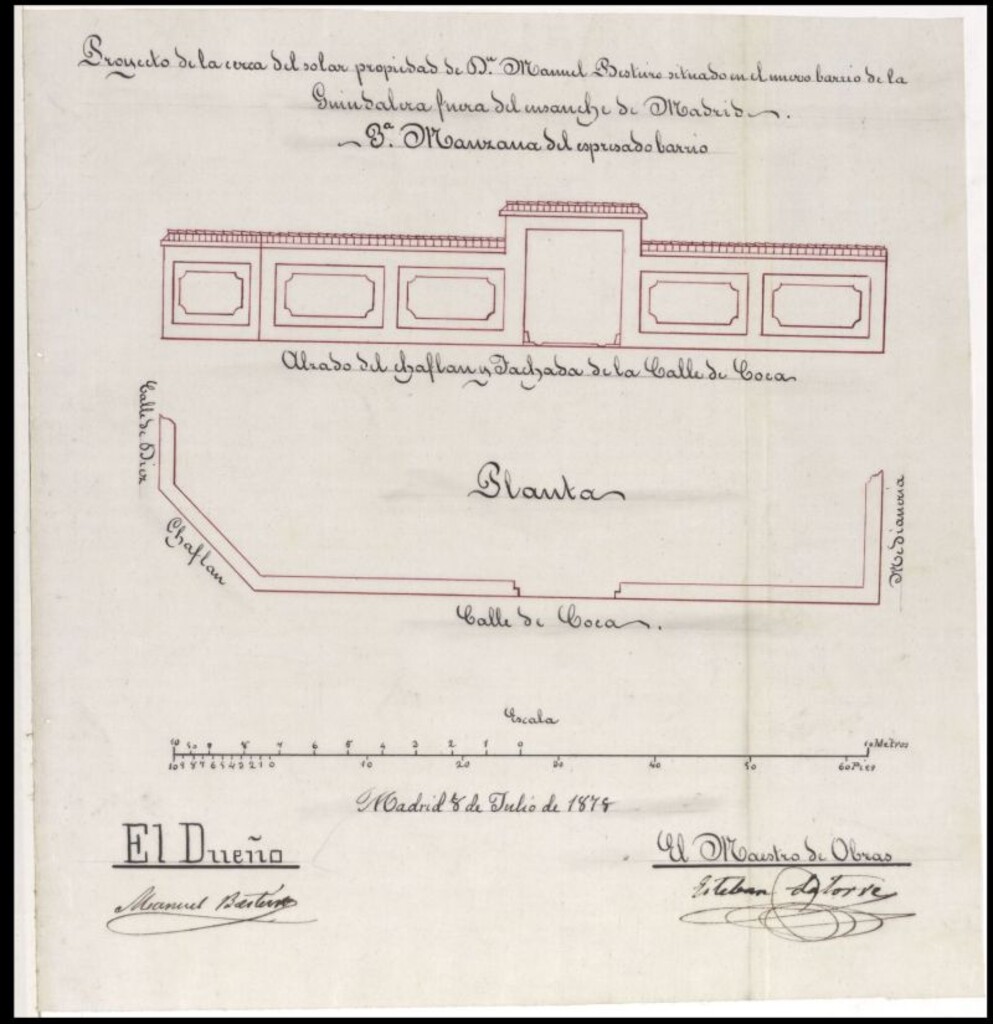 Proyecto de la cerca del solar propiedad de Dn. Manuel Besteiro situado en el nuevo barrio de la
Guindalera fuera del ensanche de Madrid.
3ª. Manzana del espresado barrio
Alzado del chaflan y Fachada de la Calle de Coca
Calle de
Planta
Chaflan
Medianeria
Calle de Coca.
Escala
10 9 8 7 6 5 4 3 2 1 0 10 20 30 40 50 60 Pies
8 7 6 5 4 3 2 1 0 10 Metros
Madrid 8 de Julio de 1878
El Dueño
El Maestro de Obras
Manuel
Esteban Latorre